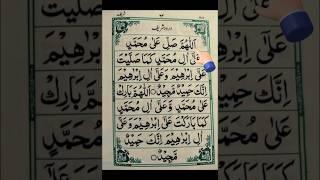 درود شریف
اَللّٰهُمَّ صَلِّ عَلٰى مُحَمَّدٍ
اٰلِ مُحَمَّدٍ كَمَا صَلَّيْتَ
عَلٰٓى اِبْرٰهِيْمَ وَعَلٰٓى اٰلِ اِبْرٰهِيْمَ
اِنَّكَ حَمِيْدٌ مَّجِيْدٌ ۝ اَللّٰهُمَّ بَارِكْ
عَلٰى مُحَمَّدٍ وَّعَلٰٓى اٰلِ مُحَمَّدٍ
كَمَا بَارَكْتَ عَلٰٓى اِبْرٰهِيْمَ وَعَلٰٓى
اٰلِ اِبْرٰهِيْمَ اِنَّكَ حَمِيْدٌ
مَّجِيْدٌ ۝